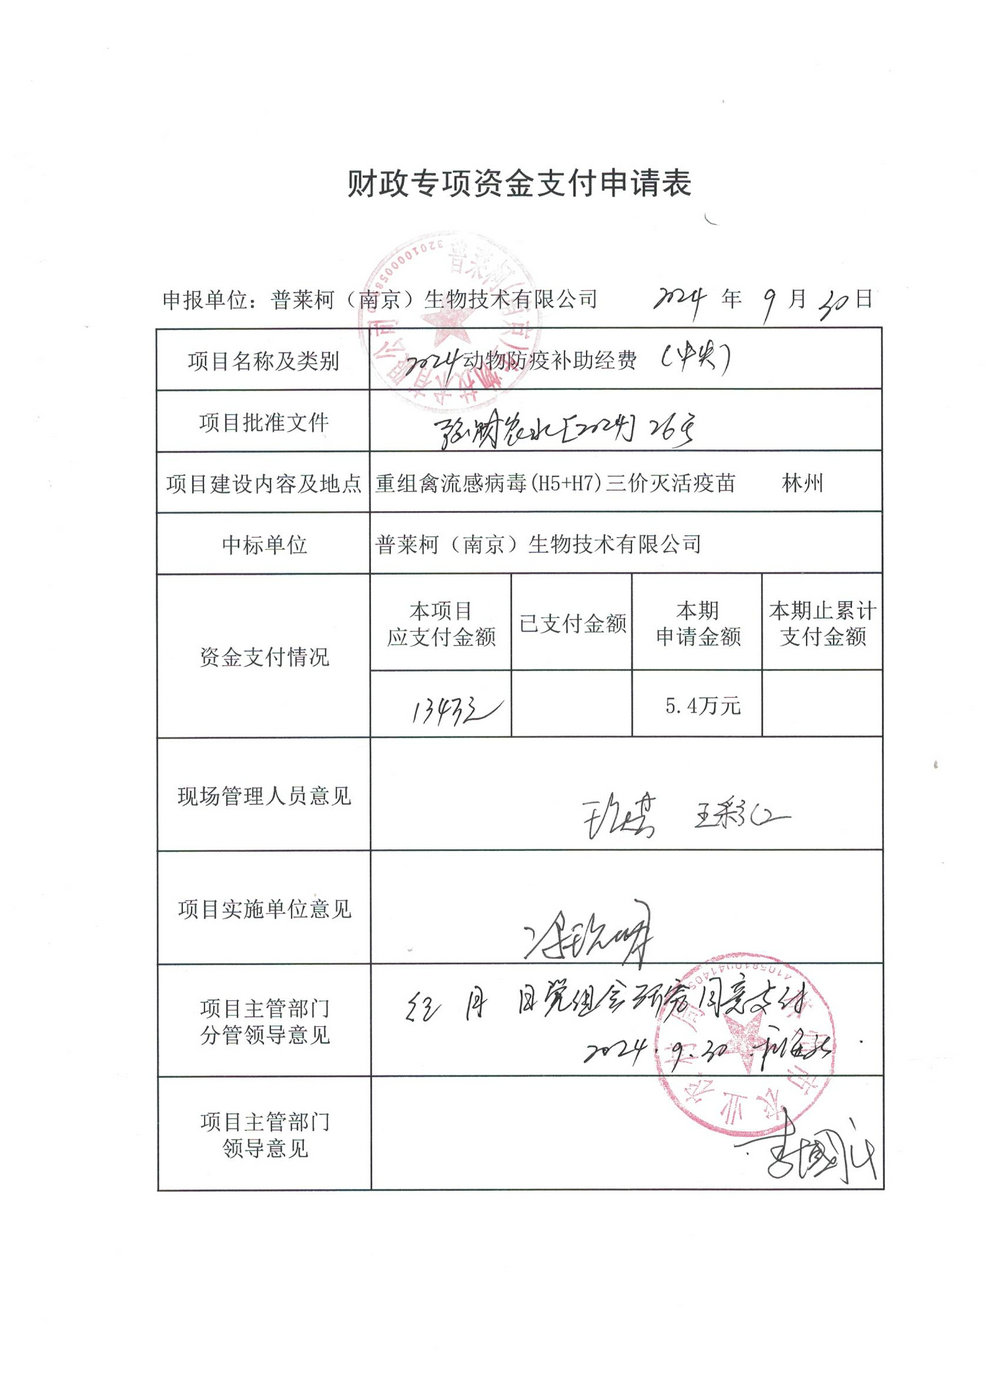 财政专项资金支付申请表
申报单位：普莱柯（南京）生物技术有限公司 2024 年 9 月 30 日
项目名称及类别 2024动物防疫补助经费（中央）
项目批准文件 财农水[2024]26号
项目建设内容及地点 重组禽流感病毒(H5+H7)三价灭活疫苗 林州
中标单位 普莱柯（南京）生物技术有限公司
资金支付情况
本项目
应支付金额
已支付金额
本期
申请金额
本期止累计
支付金额
134万元 5.4万元
现场管理人员意见 王彩红
项目实施单位意见
项目主管部门
分管领导意见
经 月 日党组会研究同意支付
2024.9.30
项目主管部门
领导意见
李国